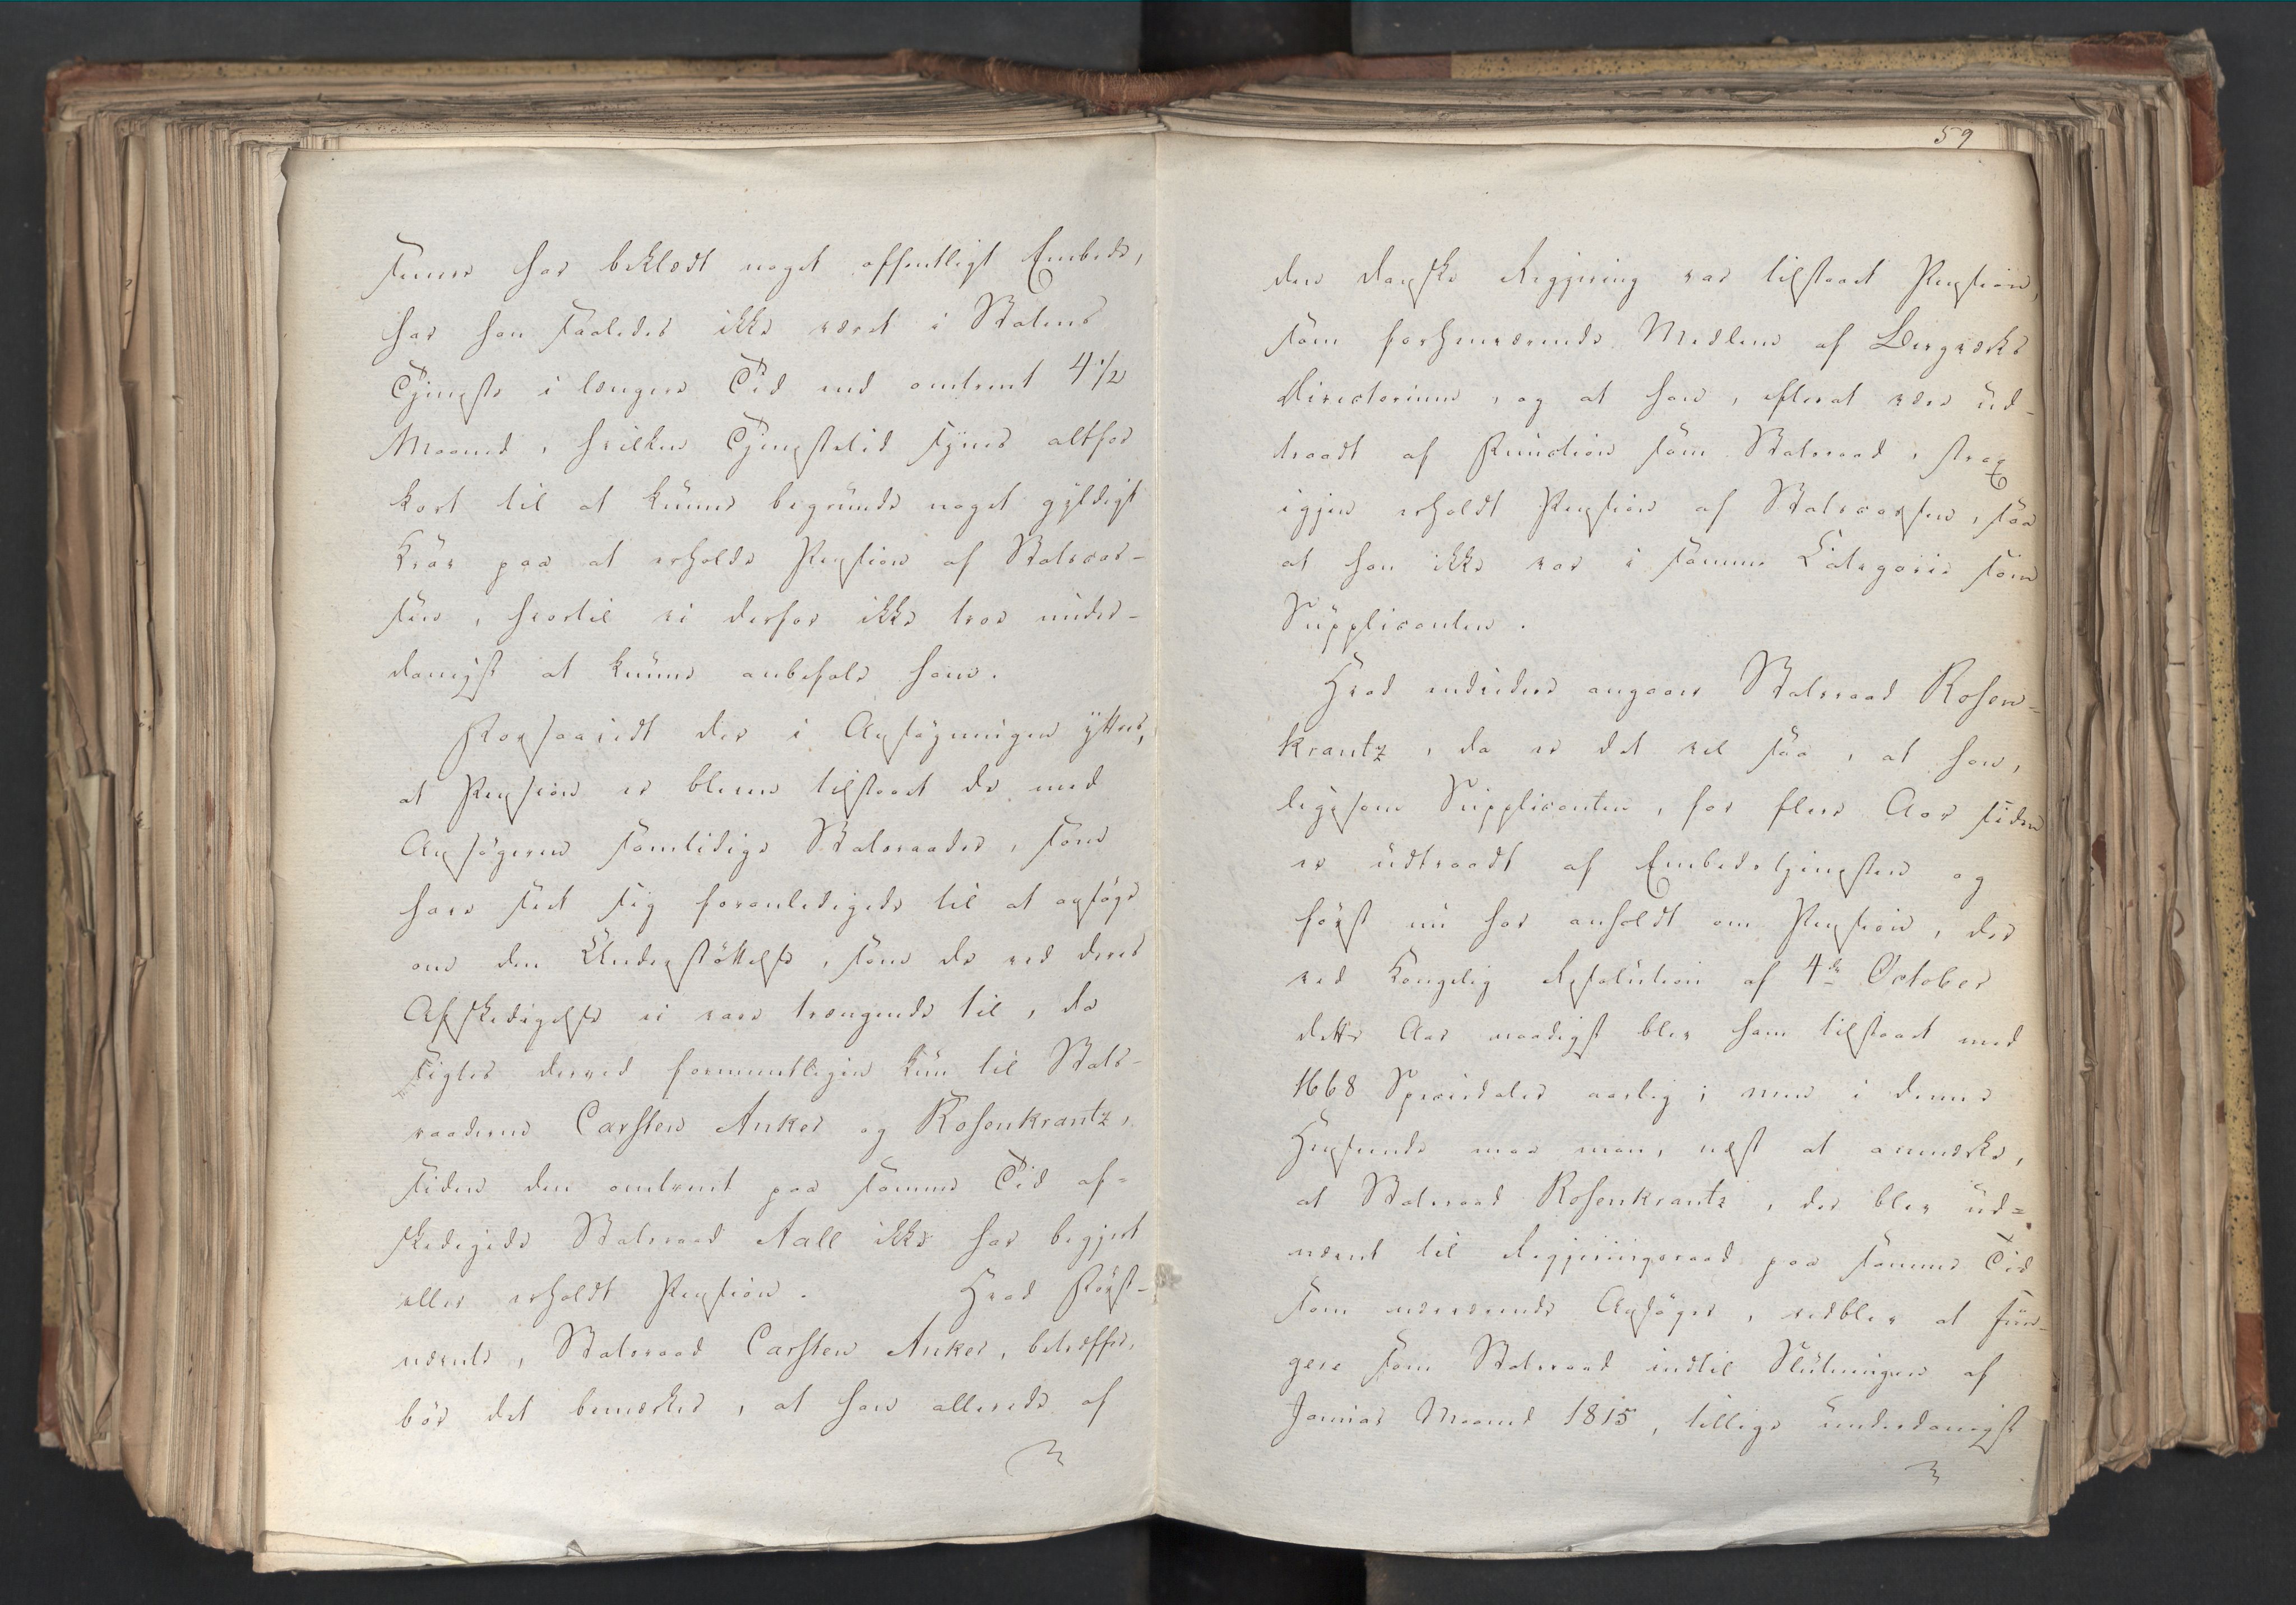 senere har beklædt noget offentligt Embede,
har han saaledes ikke været i Statens
Tjeneste i længere Tid end omtrent 4 1/2
Maaned, hvilken Tjenestetid synes altfor
kort til at kunne begrunde noget gyldigt
Krav paa at erholde Pension af Statscas-
sen, hvortil vi derfor ikke troe under-
danigst at kunne anbefale ham.
Forsaavidt der i Ansøgningen yttres,
at Pension er bleven tilstaaet de med
Ansøgeren samtidige Statsraader, som
have seet sig foranledigede til at ansøge
om den Understøttelse, som de ved deres
Afskedigelse ei vare trængende til, da
sigtes derved formeentligen kun til Stats-
raaderne Carsten Anker og Rosenkrantz,
siden den omtrent paa samme Tid af-
skedigede Statsraad Aall ikke har begjert
eller erholdt Pension. Hvad Først-
nævnte, Statsraad Carsten Anker, betræffer,
bør det bemærkes, at han allerede af
59
den danske Regjering var tilstaaet Pension,
som forhenværende Medlem af Bergværks
Directorium, og at han, efterat være ud-
traadt af Function som Statsraad, strax
igjen erholdt Pension af Statscassen, saa
at han ikke var i samme Categorie som
Supplicanten.
Hvad endvidere angaaer Statsraad Rosen-
krantz, da er det vel saa, at han,
ligesom Supplicanten, for flere Aar siden
er udtraadt af Embedstjenesten og
først nu har anholdt om Pension, der
ved Kongelig Resolution af 4de October
dette Aar naadigst blev ham tilstaaet med
1668 Speciedaler aarlig; men i denne
Henseende maa man, næst at anmærke,
at Statsraad Rosenkrantz, der blev ud-
nævnt til Regjeringsraad paa samme Tid
som nærværende Ansøger, vedblev at fun-
gere som Statsraad indtil Slutningen af
Januar Maaned 1815, tillige underdanigst